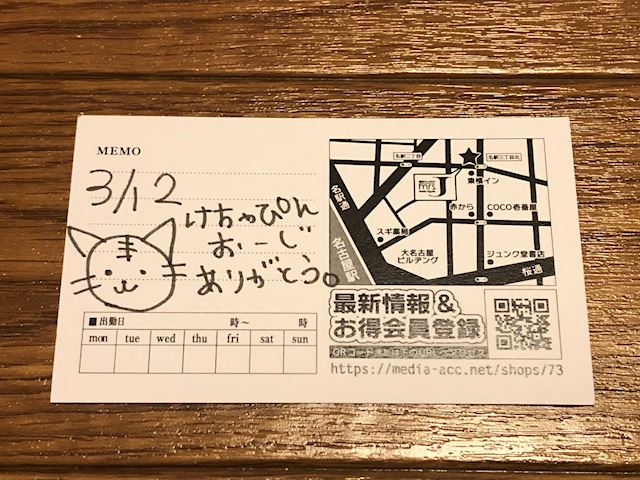 MEMO
3/12
けちゃぴん
おーじ
ありがとう。
■出勤日 時〜 時
mon tue wed thu fri sat sun
名駅二丁目
名駅三丁目北
東横イン
mrs
名駅通
赤から
COCO壱番屋
スギ薬局
名古屋駅
大名古屋
ビルヂング
ジュンク堂書店
桜通
最新情報&
お得会員登録
QRコードまたは下のURLへアクセス
https://media-acc.net/shops/73